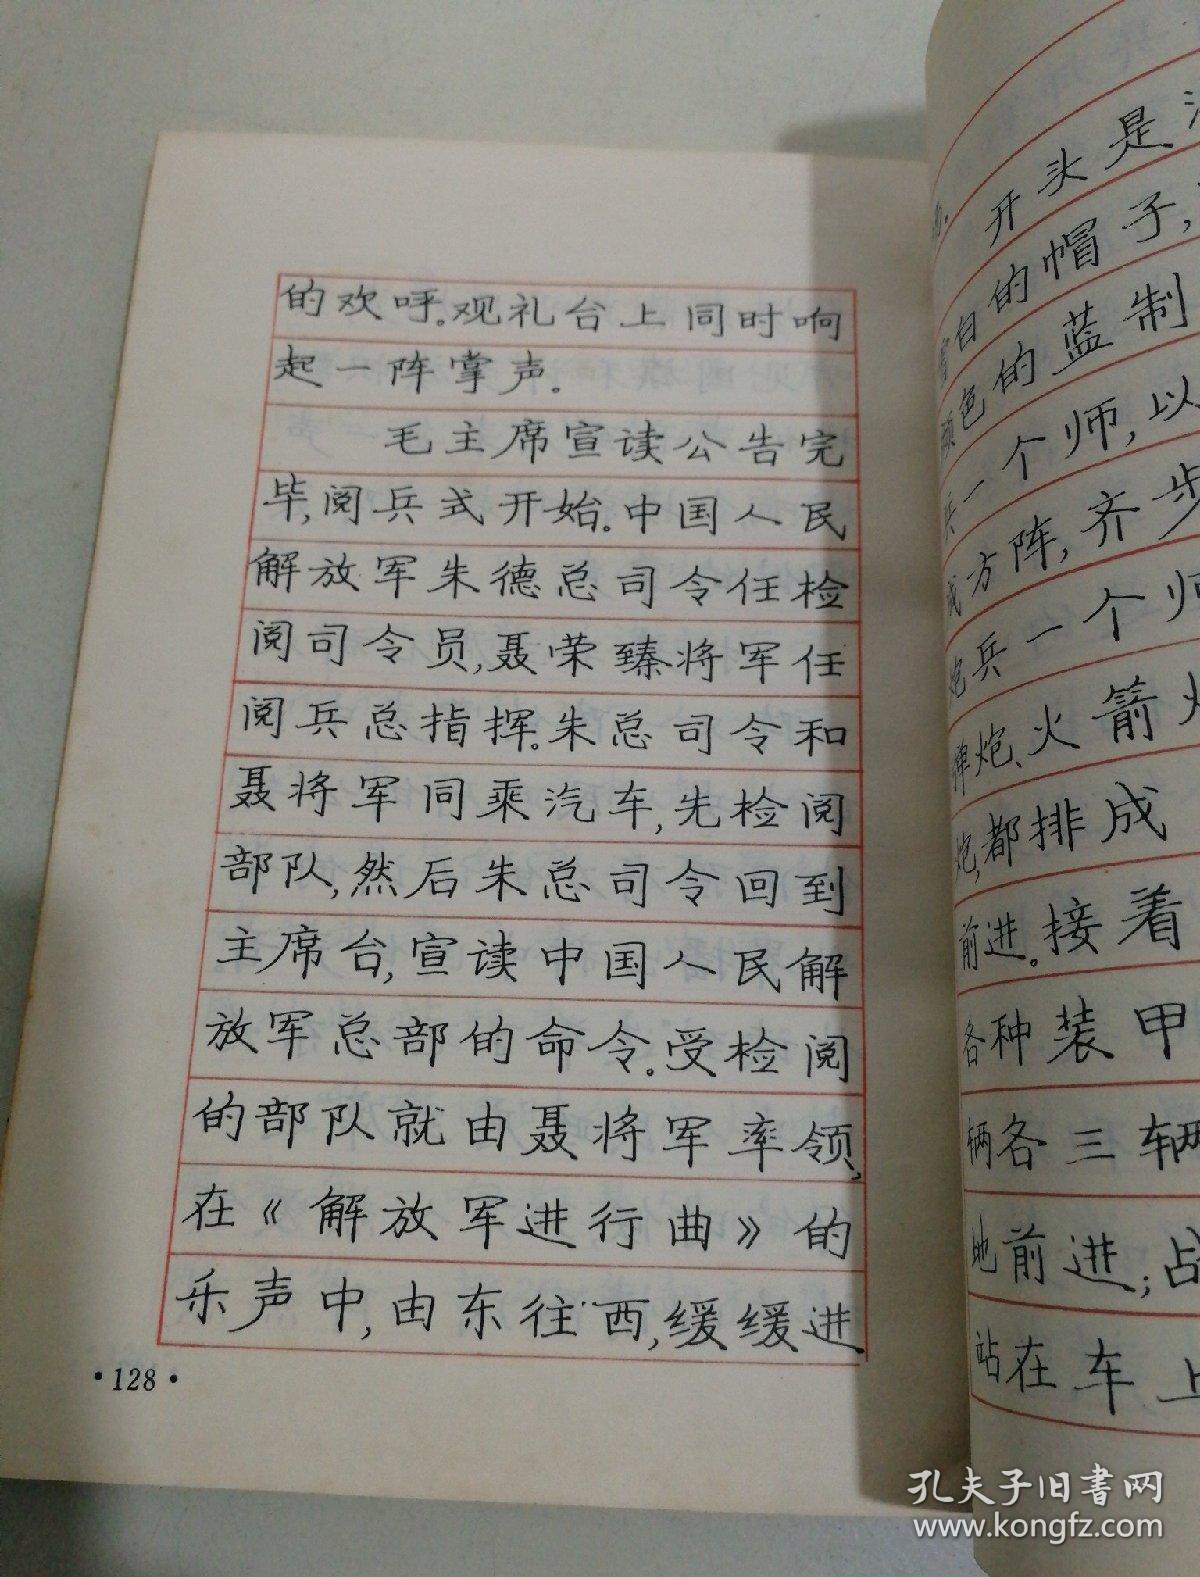 的欢呼。观礼台上同时响
起一阵掌声。
毛主席宣读公告完
毕,阅兵式开始。中国人民
解放军朱德总司令任检
阅司令员,聂荣臻将军任
阅兵总指挥。朱总司令和
聂将军同乘汽车,先检阅
部队,然后朱总司令回到
主席台,宣读中国人民解
放军总部的命令。受检阅
的部队就由聂将军率领,
在《解放军进行曲》的
乐声中,由东往西,缓缓进
·128·
开头是
白的帽子,
色的蓝制
兵一个师,以
成方阵,齐步
炮兵一个师
弹炮、火箭
炮,都排成
前进。接着
各种装甲
辆各三辆
地前进;战
站在车上
孔夫子旧书网
www.kongfz.com